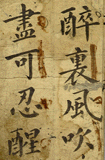 醉裏風吹
盡可忍醒